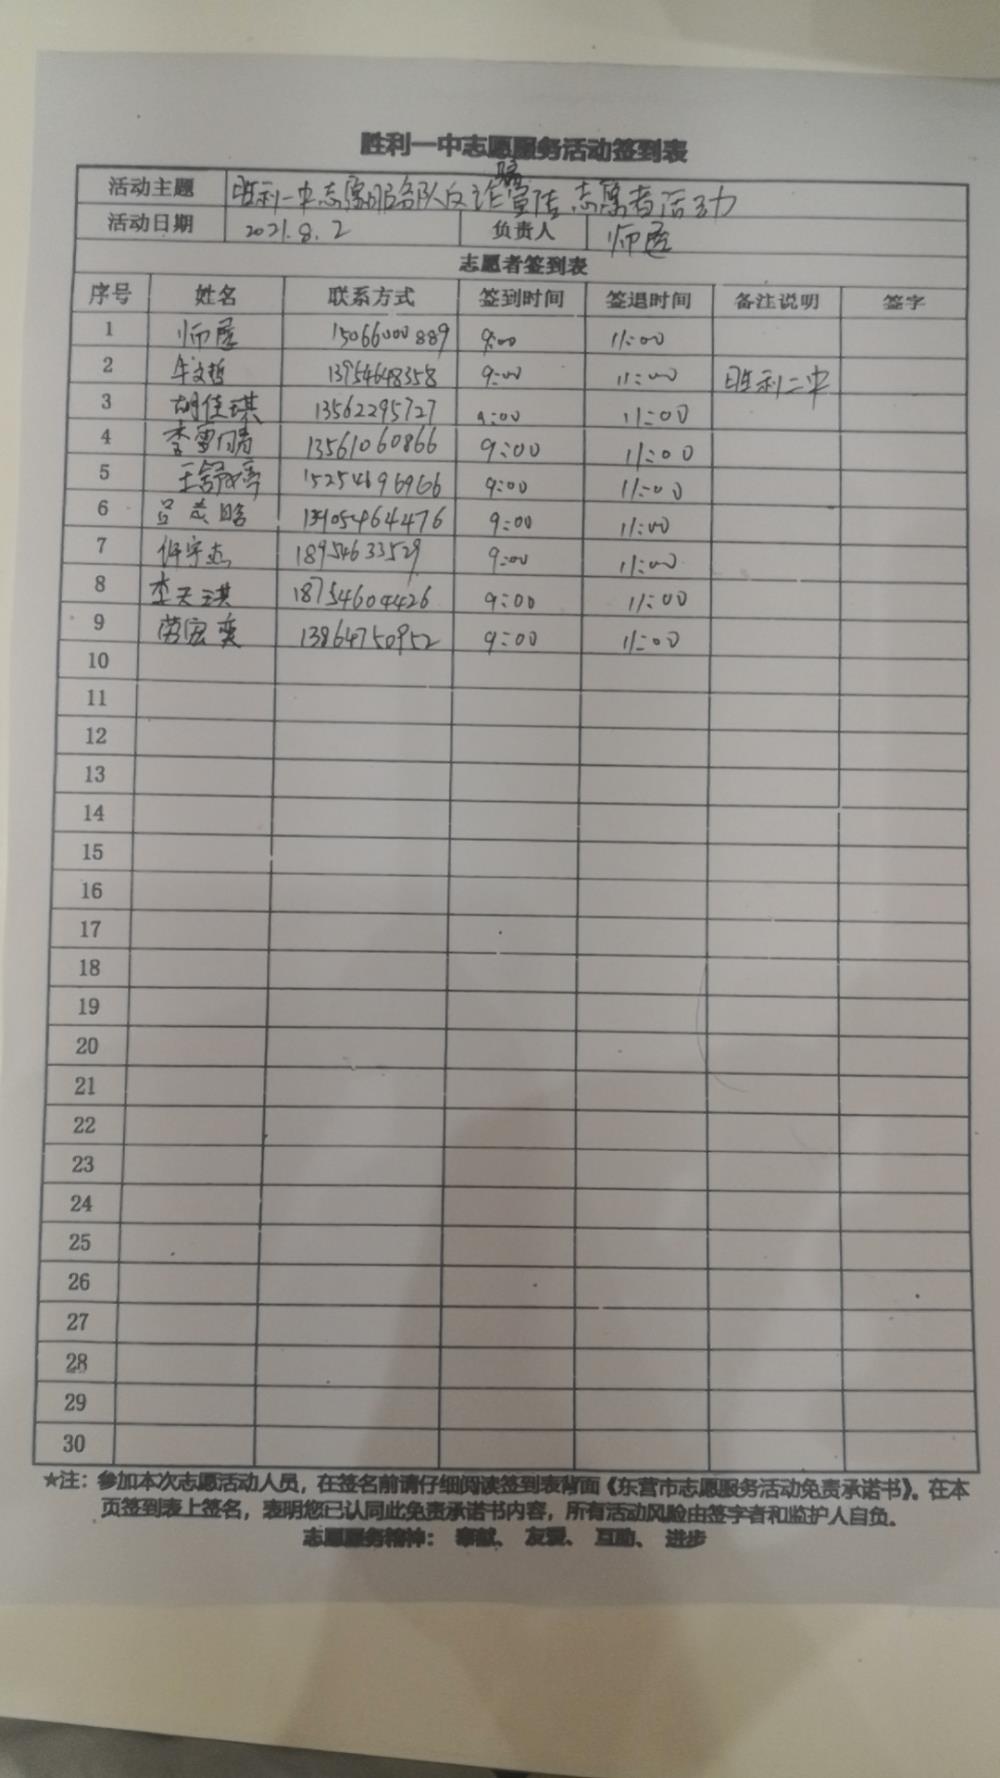 胜利一中志愿服务活动签到表
活动主题 胜利一中志愿服务队反诈骗宣传志愿者活动
活动日期 2021.8.2 负责人 师
志愿者签到表
序号 姓名 联系方式 签到时间 签退时间 备注说明 签字
1 师 15066000889 9:00 11:00
2 牛文哲 13954648358 9:00 11:00 胜利二中
3 胡佳琪 13562295727 9:00 11:00
4 李雪晴 13561060866 9:00 11:00
5 王舒婷 15254696966 9:00 11:00
6 9:00 11:00
7 许宇杰 18954633529 9:00 11:00
8 李天琪 18754604426 9:00 11:00
9 劳宏奕 13864750952 9:00 11:00
10
11
12
13
14
15
16
17
18
19
20
21
22
23
24
25
26
27
28
29
30
★注：参加本次志愿活动人员，在签名前请仔细阅读签到表背面《东营市志愿服务活动免责承诺书》。在本
页签到表上签名，表明您已认同此免责承诺书内容，所有活动风险由签字者和监护人自负。
志愿服务精神： 奉献、 友爱、 互助、 进步